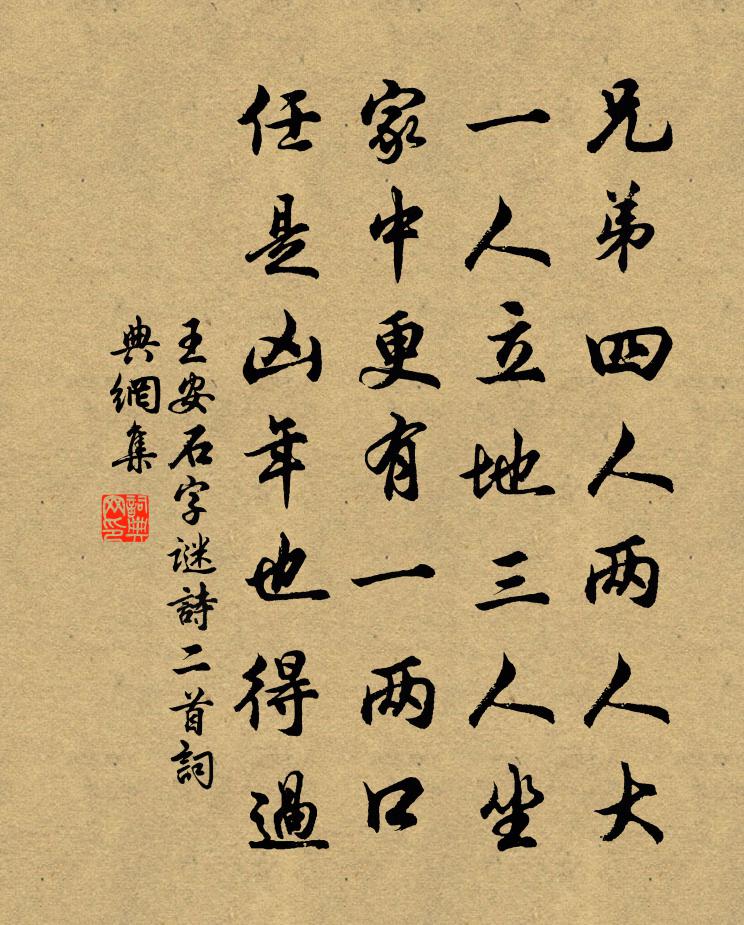 兄弟四人两人大
一人立地三人坐
家中更有一两口
任是凶年也得過
王安石字谜詩二首詞
典網集
詞典
网印